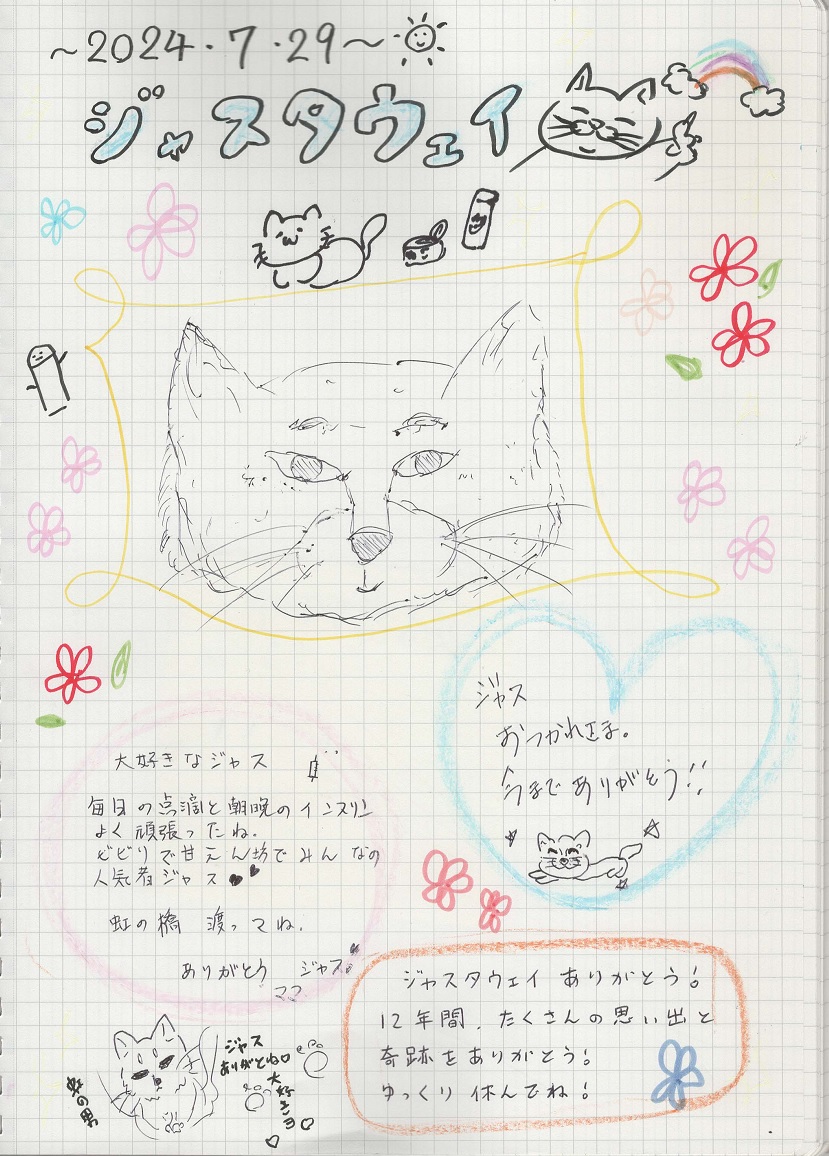 ~2024.7.29~
ジャスタウェイ
ジャス
おつかれさま。
今までありがとう!!
大好きなジャス
毎日の点滴と朝晩のインスリン
よく頑張ったね。
ビビりで甘えん坊でみんなの
人気者ジャス
虹の橋 渡ってね。
ありがとう ジャス。
ママ
ジャスタウェイ ありがとう!
12年間、たくさんの思い出と
奇跡をありがとう!
ゆっくり休んでね!
ジャス
ありがとね
大好きヨ